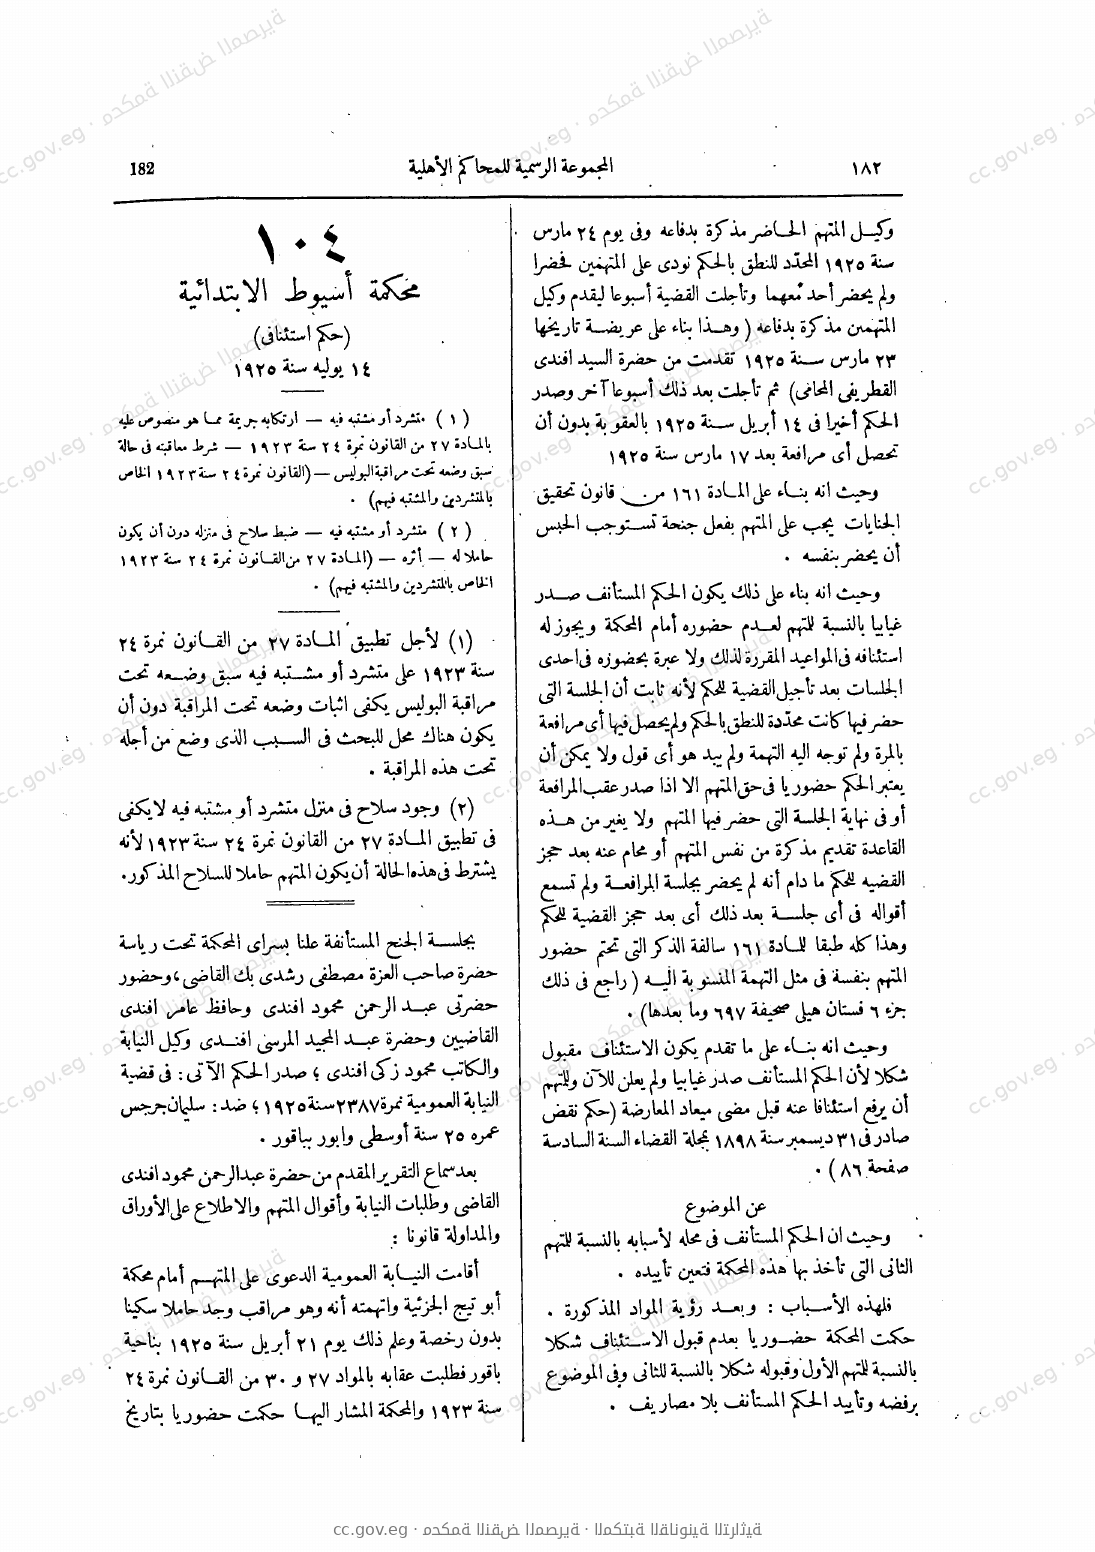 ١٨٢
المجموعة الرسمية للمحاكم الأهلية
182
وكيل المتهم الحاضر مذكرة بدفاعه وفى يوم ٢٤ مارس
سنة ١٩٢٥ المحدّد للنطق بالحكم نودى على المتهمين فحضرا
ولم يحضر أحد معهما وتأجلت القضية أسبوعا ليقدم وكيل
المتهمين مذكرة بدفاعه (وهذا بناء على عريضة تاريخها
٢٣ مارس سنة ١٩٢٥ تقدمت من حضرة السيد افندى
القطريفى المحامى) ثم تأجلت بعد ذلك أسبوعا آخر وصدر
الحكم أخيرا فى ١٤ أبريل سنة ١٩٢٥ بالعقوبة بدون أن
تحصل أى مرافعة بعد ١٧ مارس سنة ١٩٢٥
وحيث انه بناء على المادة ١٦١ من قانون تحقيق
الجنايات يجب على المتهم بفعل جنحة تستوجب الحبس
أن يحضر بنفسه .
وحيث انه بناء على ذلك يكون الحكم المستأنف صدر
غيابيا بالنسبة للتهم لعدم حضوره أمام المحكمة ويجوز له
استئنافه فى المواعيد المقررة لذلك ولا عبرة بحضوزه فى احدى
الجلسات بعد تأجيل القضية للحكم لأنه ثابت أن الجلسة التى
حضر فيها كانت محدّدة للنطق بالحكم ولم يحصل فيها أى مرافعة
بالمرة ولم توجه اليه التهمة ولم يبد هو أى قول ولا يمكن أن
يعتبر الحكم حضوريا فى حق المتهم الا اذا صدر عقب المرافعة
أو فى نهاية الجلسة التى حضر فيها المتهم ولا يغير من هذه
القاعدة تقديم مذكرة من نفس المتهم أو محام عنه بعد حجز
القضيه للحكم ما دام أنه لم يحضر بجلسة المرافعة ولم تسمع
أقواله فى أى جلسة بعد ذلك أى بعد حجز القضية للحكم
وهذا كله طبقا للمادة ١٦١ سالفة الذكر التى تحتم حضور
المتهم بنفسة فى مثل التهمة المنسوبة اليه (راجع فى ذلك
جزء ٦ فستان هيلى صحيفة ٦٩٧ وما بعدها) .
وحيث انه بناء على ما تقدم يكون الاستئناف مقبول
شكلا لأن الحكم المستأنف صدر غيابيا ولم يعلن للآن وللتهم
أن يرفع استئنافا عنه قبل مضى ميعاد المعارضة (حكم نقض
صادر فى ٣١ ديسمبر سنة ١٨٩٨ بمجلة القضاء السنة السادسة
صفحة ٨٦) .
عن الموضوع
وحيث ان الحكم المستأنف فى محله لأسبابه بالنسبة للتهم
الثانى التى تأخذ بها هذه المحكمة فتعين تأييده .
فلهذه الأسباب : وبعد رؤية المواد المذكورة .
حكمت المحكمة حضوريا بعدم قبول الاستئناف شكلا
بالنسبة للتهم الأول وقبوله شكلا بالنسبة للثانى وفى الموضوع
برفضه وتأييد الحكم المستأنف بلا مصاريف .
١٠٤
محكمة أسيوط الابتدائية
(حكم استئنافى)
١٤ يوليه سنة ١٩٢٥
(١) متشرد أو مشتبه فيه — ارتكابه جريمة مما هو منصوص عليه
بالمادة ٢٧ من القانون نمرة ٢٤ سنة ١٩٢٣ — شرط معاقبته فى حالة
سبق وضعه تحت مراقبة البوليس — (القانون نمرة ٢٤ سنة ١٩٢٣ الخاص
بالمتشردين والمشتبه فيهم) .
(٢) متشرد أو مشتبه فيه — ضبط سلاح فى منزله دون أن يكون
حاملا له — أثره — (المادة ٢٧ من القانون نمرة ٢٤ سنة ١٩٢٣
الخاص بالمتشردين والمشتبه فيهم) .
(١) لأجل تطبيق المادة ٢٧ من القانون نمرة ٢٤
سنة ١٩٢٣ على متشرد أو مشتبه فيه سبق وضعه تحت
مراقبة البوليس يكفى اثبات وضعه تحت المراقبة دون أن
يكون هناك محل للبحث فى السبب الذى وضع من أجله
تحت هذه المراقبة .
(٢) وجود سلاح فى منزل متشرد أو مشتبه فيه لا يكفى
فى تطبيق المادة ٢٧ من القانون نمرة ٢٤ سنة ١٩٢٣ لأنه
يشترط فى هذه الحالة أن يكون المتهم حاملا للسلاح المذكور.
بجلسة الجنح المستأنفة علنا بسراى المحكمة تحت رياسة
حضرة صاحب العزة مصطفى رشدى بك القاضى، وحضور
حضرتى عبد الرحمن محمود افندى وحافظ عامر افندى
القاضيين وحضرة عبد المجيد المرسى افندى وكيل النيابة
والكاتب محمود زكى افندى ؛ صدر الحكم الآتى : فى قضية
النيابة العمومية نمرة ٢٣٨٧ سنة ١٩٢٥ ؛ ضد : سليمان جرجس
عمره ٢٥ سنة أوسطى وابور بباقور .
بعد سماع التقرير المقدم من حضرة عبد الرحمن محمود افندى
القاضى وطلبات النيابة وأقوال المتهم والاطلاع على الأوراق
والمداولة قانونا :
أقامت النيابة العمومية الدعوى على المتهم أمام محكمة
أبو تيج الجزئية واتهمته أنه وهو مراقب وجد حاملا سكينا
بدون رخصة وعلم ذلك يوم ٢١ أبريل سنة ١٩٢٥ بناحية
باقور فطلبت عقابه بالمواد ٢٧ و ٣٠ من القانون نمرة ٢٤
سنة ١٩٢٣ والمحكمة المشار اليها حكمت حضوريا بتاريخ
cc.gov.eg · محكمة النقض المصرية · المكتبة القانونية التراثية